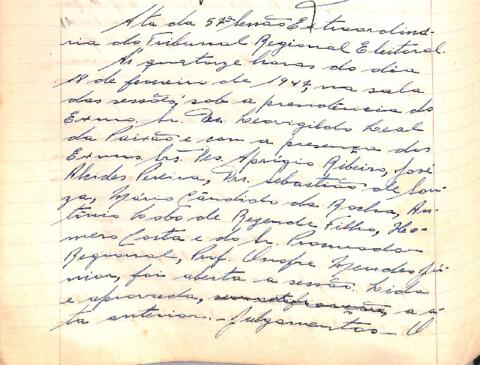 Ata da 52ª Sessão Extraordiná-
ria do Tribunal Regional Eleitoral.
Ás quatorze horas do dia
18 de fevereiro de 1947, na sala
das sessões, sob a presidencia do
Exmo. Sr. Des. Leovigildo Leal
da Paixão e com a presença dos
Exmos. Srs. Des. Aprigio Ribeiro, José
Alcides Pereira, Drs. Sebastião de Sou-
za, Márcio Cândido da Rocha, An-
tônio Lobo de Rezende Filho, Ho-
mero Costa e do Sr. Procurador
Regional, Prof. Onofre Mendes Jú-
nior, foi aberta a sessão. Lida
e aprovada, sem retificação, a a-
ta anterior. - Julgamentos - O